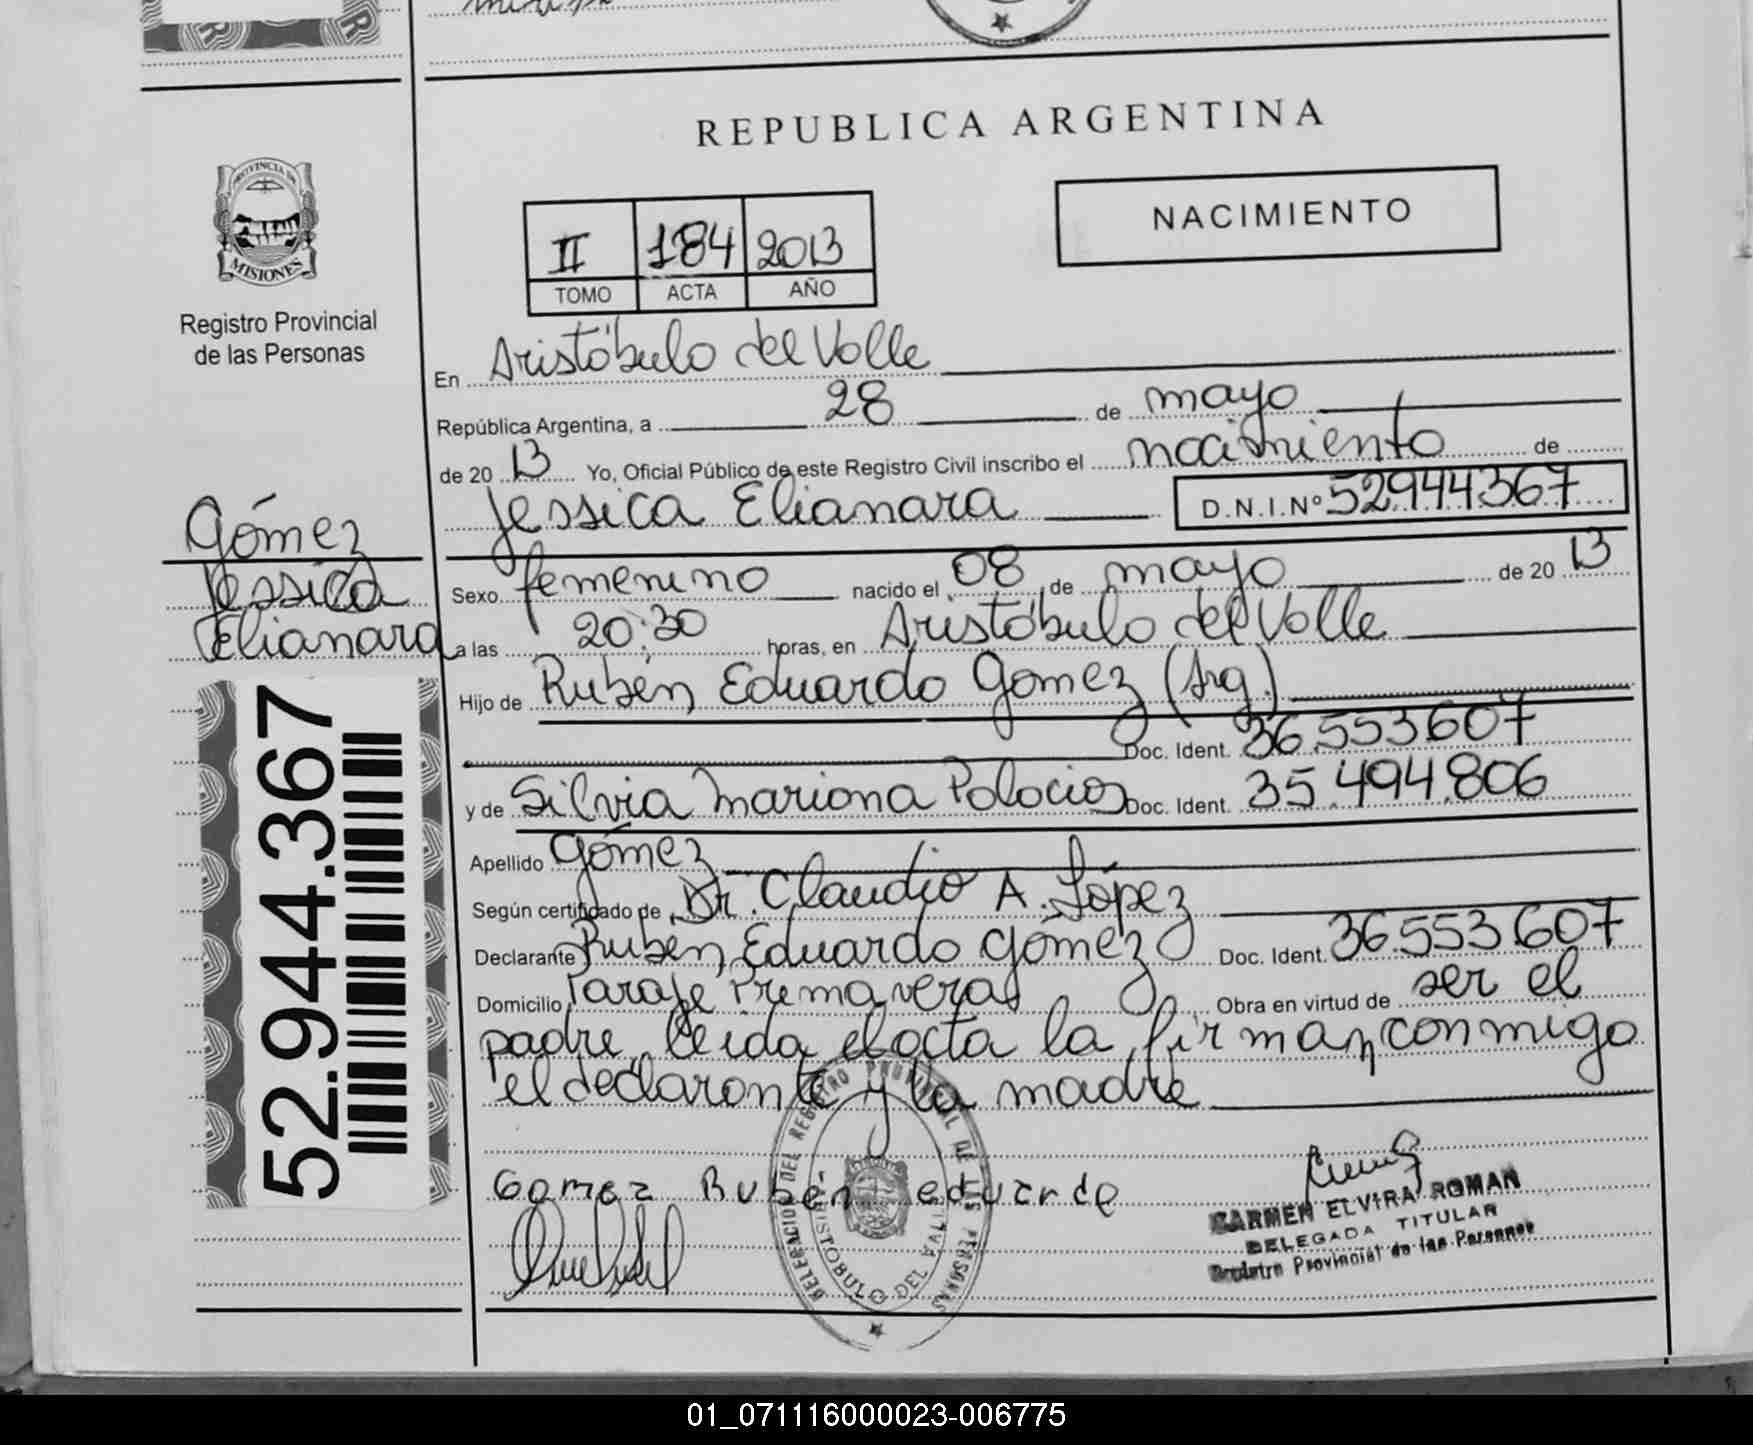 REPUBLICA ARGENTINA
NACIMIENTO
II 184 2013
TOMO ACTA AÑO
PROVINCIA DE
MISIONES
Registro Provincial
de las Personas
En Aristóbulo del Valle
República Argentina, a 28 de mayo
de 20 13 Yo, Oficial Público de este Registro Civil inscribo el nacimiento de
Jessica Elianara D.N.I.Nº 52944367
Gómez
Jessica
Elianara
Sexo femenino nacido el 08 de mayo de 20 13
a las 20:30 horas, en Aristóbulo del Valle
Hijo de Rubén Eduardo Gomez (Arg.)
Doc. Ident. 36.553607
y de Silvia Mariana Palacios Doc. Ident. 35.494.806
Apellido Gómez
Según certificado de Dr. Claudio A. López
Declarante Rubén Eduardo Gómez Doc. Ident. 36.553.607
Domicilio Paraje Primavera Obra en virtud de ser el
padre, leída el acta la firman conmigo
el declarante y la madre
52.944.367
Gomez Rubén eduardo
DELEGACION DEL REGISTRO PROVINCIAL DE LAS PERSONAS
ARISTOBULO DEL
CARMEN ELVIRA ROMAN
DELEGADA TITULAR
Registro Provincial de las Personas
01_071116000023-006775